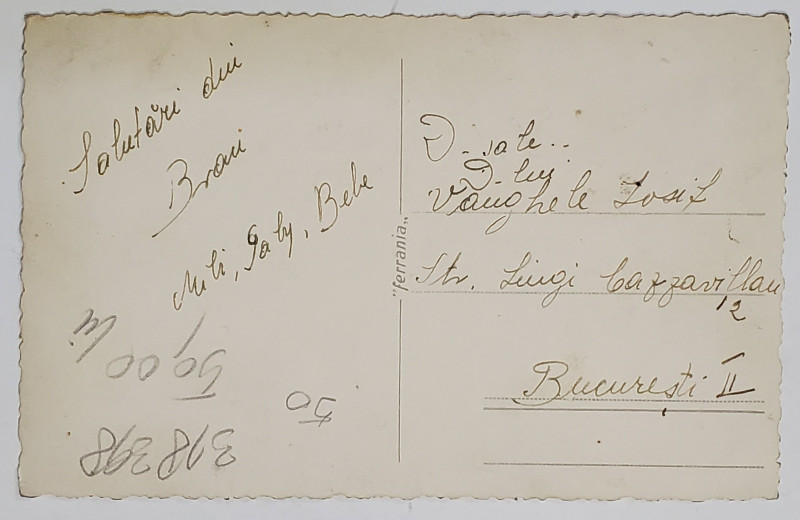 Salutări din
Bran
Mili, Gaby, Bebe
D-sale..
D-lui
Vanghele Iosif
"ferrania"
Str. Luigi Cazzavillan
12
București II
50,00
50